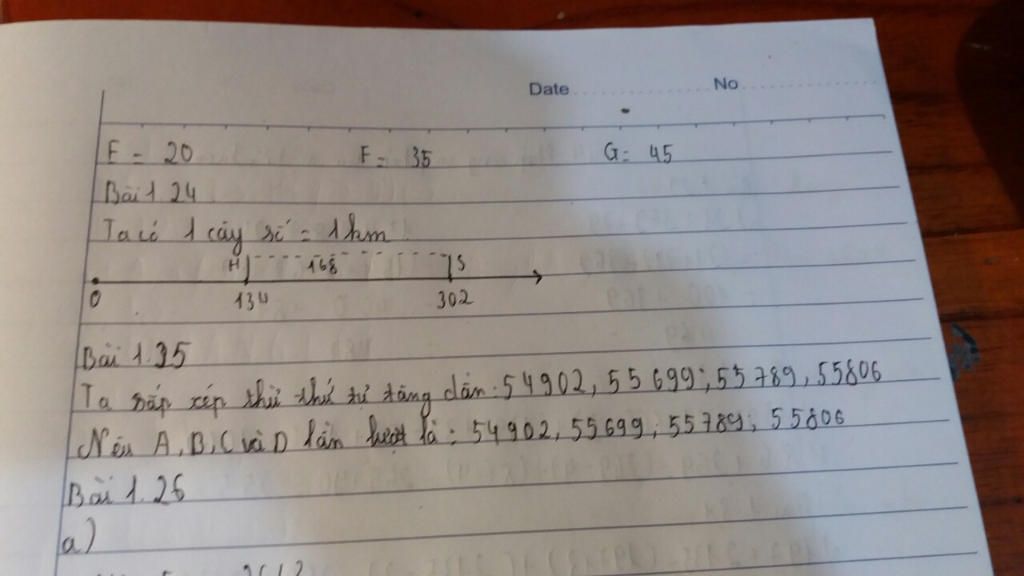 Date No
E = 20 F = 35 G = 45
Bài 1.24
Ta có 1 cây số = 1km
H 168 S
0 134 302
Bài 1.35
Ta sắp xếp thứ thứ tự tăng dần: 54902, 55699; 55789, 55806
Nếu A, B, C và D lần lượt là: 54902, 55699; 55789; 55806
Bài 1.26
a)